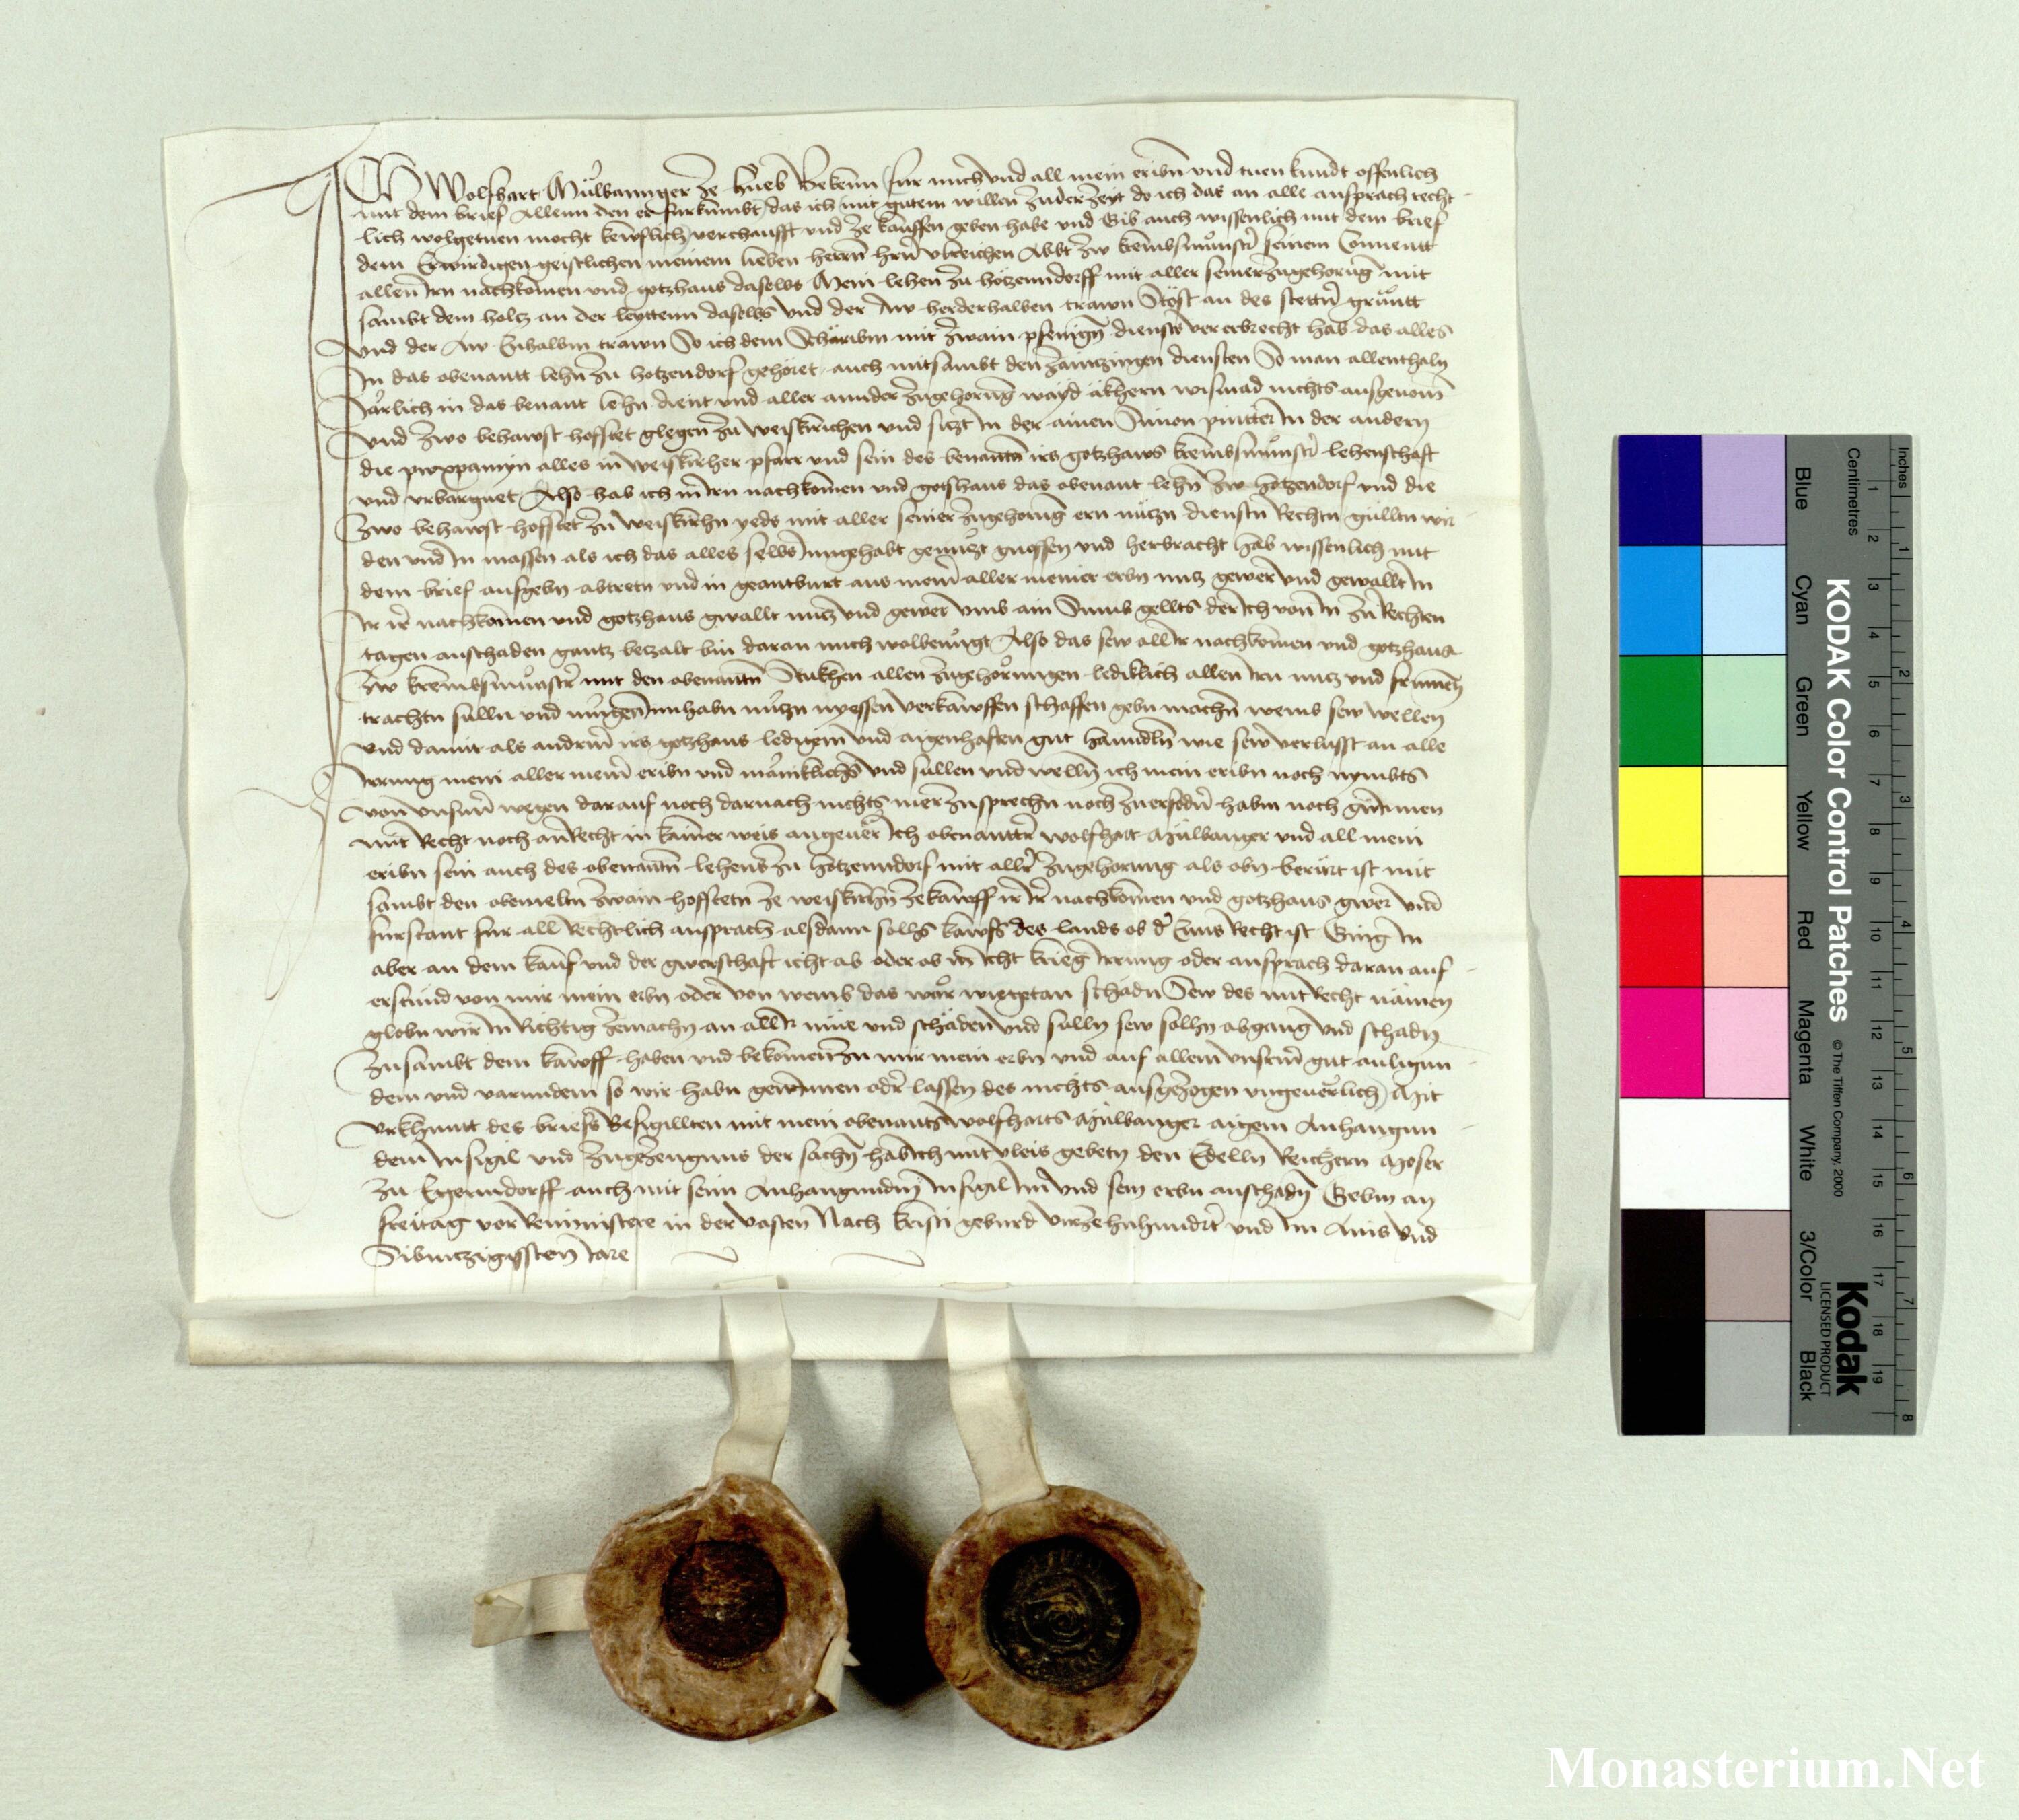 Ich Wolfhart Mulbannger ze Hueb Bekenn fur mich und all mein eribn und tuen kundt offenlich
mit dem brief Allenn den er furkumbt das ich mit gutem willen zu der zeyt do ich das an alle ansprach recht
lich wolgetuen mocht kewflich verchaufft und ze kauffen geben habe und Gib auch wissenlich mit dem brief
dem Erwirdigen geistlichen meinem lieben herrn hrn Ulreichen Abbt zw krembsmunster seinem Convent
allen irn nachkomen und gotzhaus daselbs Mein lehen zu hotzenndorff mit aller seiner zugehorug mit
sambt dem holtz an der leyttenn daselbs und der Aw herderhalben trawn Stost an des stettn gruntt
und der Aw Enhalbm trawn So ich dem Scharibm mit zwain pfenign dienst vererbrecht hab das alles
In das obenantt lehn zu hotzendorf gehoret auch mitsambt den ainczingen diensten So man allenthalbn
Jarlich in das benant lehn dient und aller annder zugehorug wayd akhern wismad nichts ausgenom
und zwo behawst hofstet glegen zu weiskirichen und siczt In der ainen Simon In der andern
die alles in weiskircher pfarr und sein des benantn irs gotzhaws krembsmunster lehenschaft
und urbarguet Also hab ich in irn nachkomen und gotshaus das obenant lehn zw hotzendorf und die
zwo behawst hofstet zu weiskirhn yeds mit aller seiner zugehorug ern nuczn dienstn Rechtn gulltn wir
den und In massen als ich das alles selbs inngehabt genuczt gnossen und herbracht hab wissenlich mit
dem brief aufgebn abtretn und in geantburt aus meiner aller meiner erbn nucz gewer und gewallt In
Ir ir nachkomen und gotzhaus gwallt nucz und gewer umb ain Sumb gellts der Ich von In zu Rechten
tagen anschaden gantz betzalt bin daran mich wolbenugt Also das sew all Ir nachkomen und gotzhaus
zw krembsmunster mit den obenantn Stukhen allen zugehorungen lediklich allen irn nucz und frumen
trachtn sulln und mugen innhabn nuczn nyessen verkawffen schaffen gebn machn wemb sew wellen
und damit als andrm irs gotzhaus ledigem und aigenhaften gut hanndln wie sew verlusst an alle
Irrung mein aller meiner eribn und maniklichs und sullen und welln ich mein eribn noch nymbts
von unsern wegen darauf noch darnach nichts mer zusprechn noch zuerfodern habm noch gwinnen
mit Recht noch an Recht in kainer weis angever Ich obenantter wolfhart Mulbanger und all mein
eribn sein auch des obenantn lehens zu hotzenndorf mit aller zugehorung als obn berurt ist mit
sambt den obemeltn zwain hofstetn ze weiskirhn ze kawff ir Ir nachkomen und gotzhaus gwer und
furstant fur all Rechtlich ansprach alsdann solhs kawfs des lands ob der Enns Recht ist Ging In
aber an dem kauf und der gwerschaft icht ab oder ob in icht krieg Irrung oder ansprach daran auf
erstund von mir mein erbn oder von wemb das war wiegetan schadn Sew des mit Recht namen
globn wir In Richtig zemachn an all Ir mue und schaden und sulln sew solhn abgang und schadn
zusambt dem kawff haben und bekomen zu mir mein erbn und auf allem unserm gut auligun
dem und varundem so wir habn gewinnen oder lassen des nichts ausgezogen ungeverlich Mit
urkhuntt des briefs Besigillten mit mein obenants wolfharts Mulbanger aigem Anhangun
dem Insigil und zugezeugnus der sachn hab Ich mit vleis gebetn den Edelln Reichern Moser
zu auch mit seim Anhangundm Insigil Im und sein erbn anschadn Gebm an
freitag vor Reminiscere in der vasten Nach kristi geburd vierzehnhundrt und Im Ains und
Sibenczigissten Jare
KODAK Color Control Patches
© The Tiffen Company, 2000
Kodak
LICENSED PRODUCT
Inches
Centimetres
1 2 3 4 5 6 7 8 9 10 11 12 13 14 15 16 17 18 19
1 2 3 4 5 6 7 8
Blue
Cyan
Green
Yellow
Red
Magenta
White
3/Color
Black
Monasterium.Net